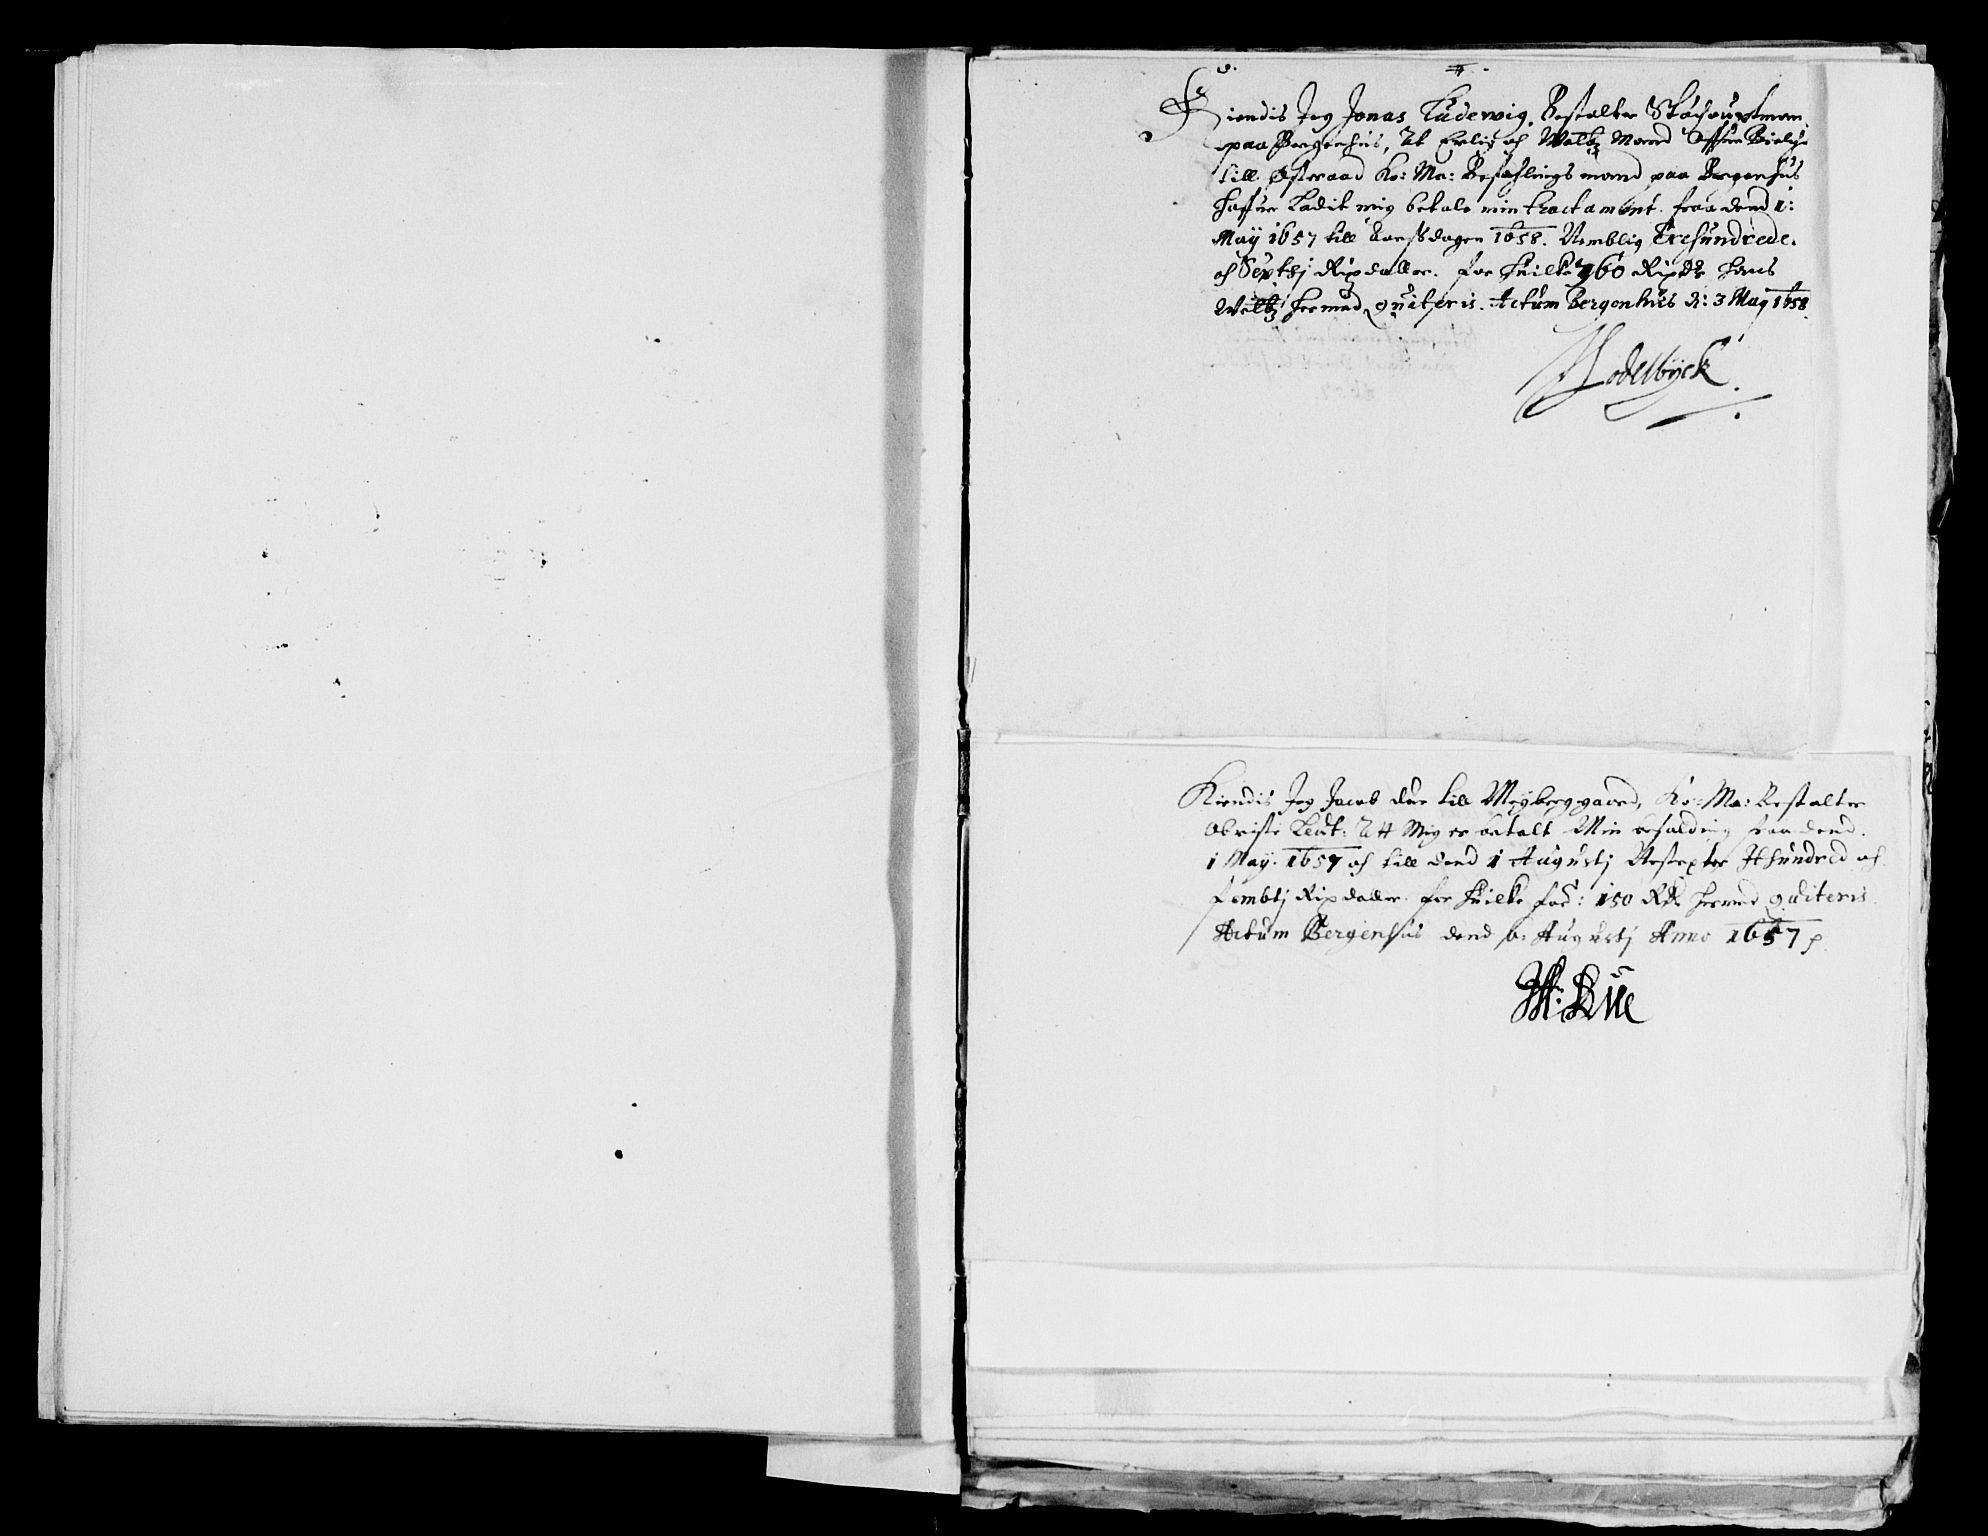 Kiendis Jeg Jonas Ludewig, Bestalter
paa Bergenhus, At Erlig och Welb: Mand Offue Bielche
till Østeraad Ko: Ma: Befahlings mand paa Bergenhus
haffuer Ladit mig betale min tractament. fraa dend 1:
May 1657 till Aarssdagen 1658. Nemblig Trehundrede.
och SextHj Rixdaller. for huilke 360 Rixdr hans
Welb: hermed quiteris. Actum Bergenhus d: 3 May 1658.
Kiendis Jeg Jacob Due till Meÿberggaard, Ko: Ma: Bestalter
Obriste Leut: At Mig er betalt Min besolding fraa dend.
1 May. 1657 och till dend 1 Augustj Hundred och
fembtj Rixdaller. for huilke for: 150 Rdr hermed quiteris.
Actum Bergenhus dend 6: Augustj Anno 1657
Due